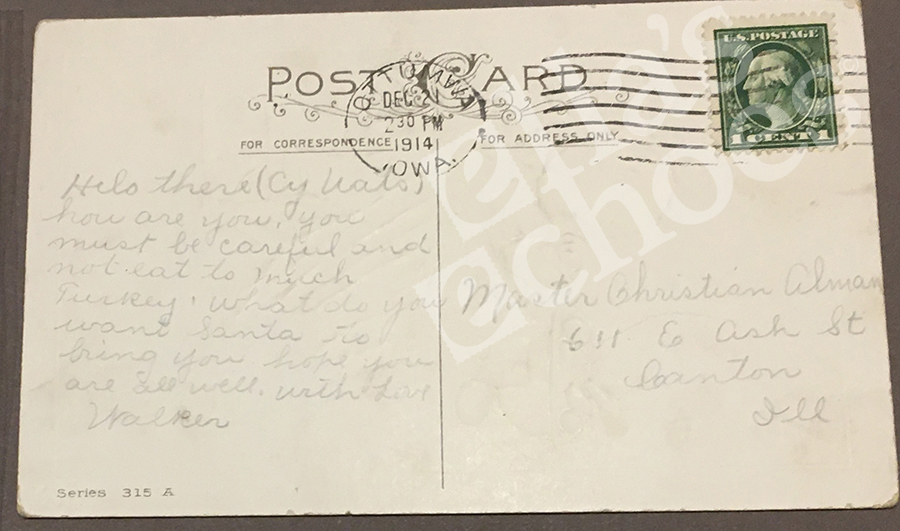 POST CARD
OTTUMWA
DEC 21
2 30 PM
1914
IOWA.
U.S. POSTAGE
1 CENT 1
FOR CORRESPONDENCE
FOR ADDRESS ONLY
Helo there (Cy
how are you, you
must be careful and
not eat to much
Turkey. What do you
want Santa to
bring you hope you
are all well. with Love
Walker
Master Christian Alman
611 E Ash St
Canton
Ill
Series 315 A
Echoes